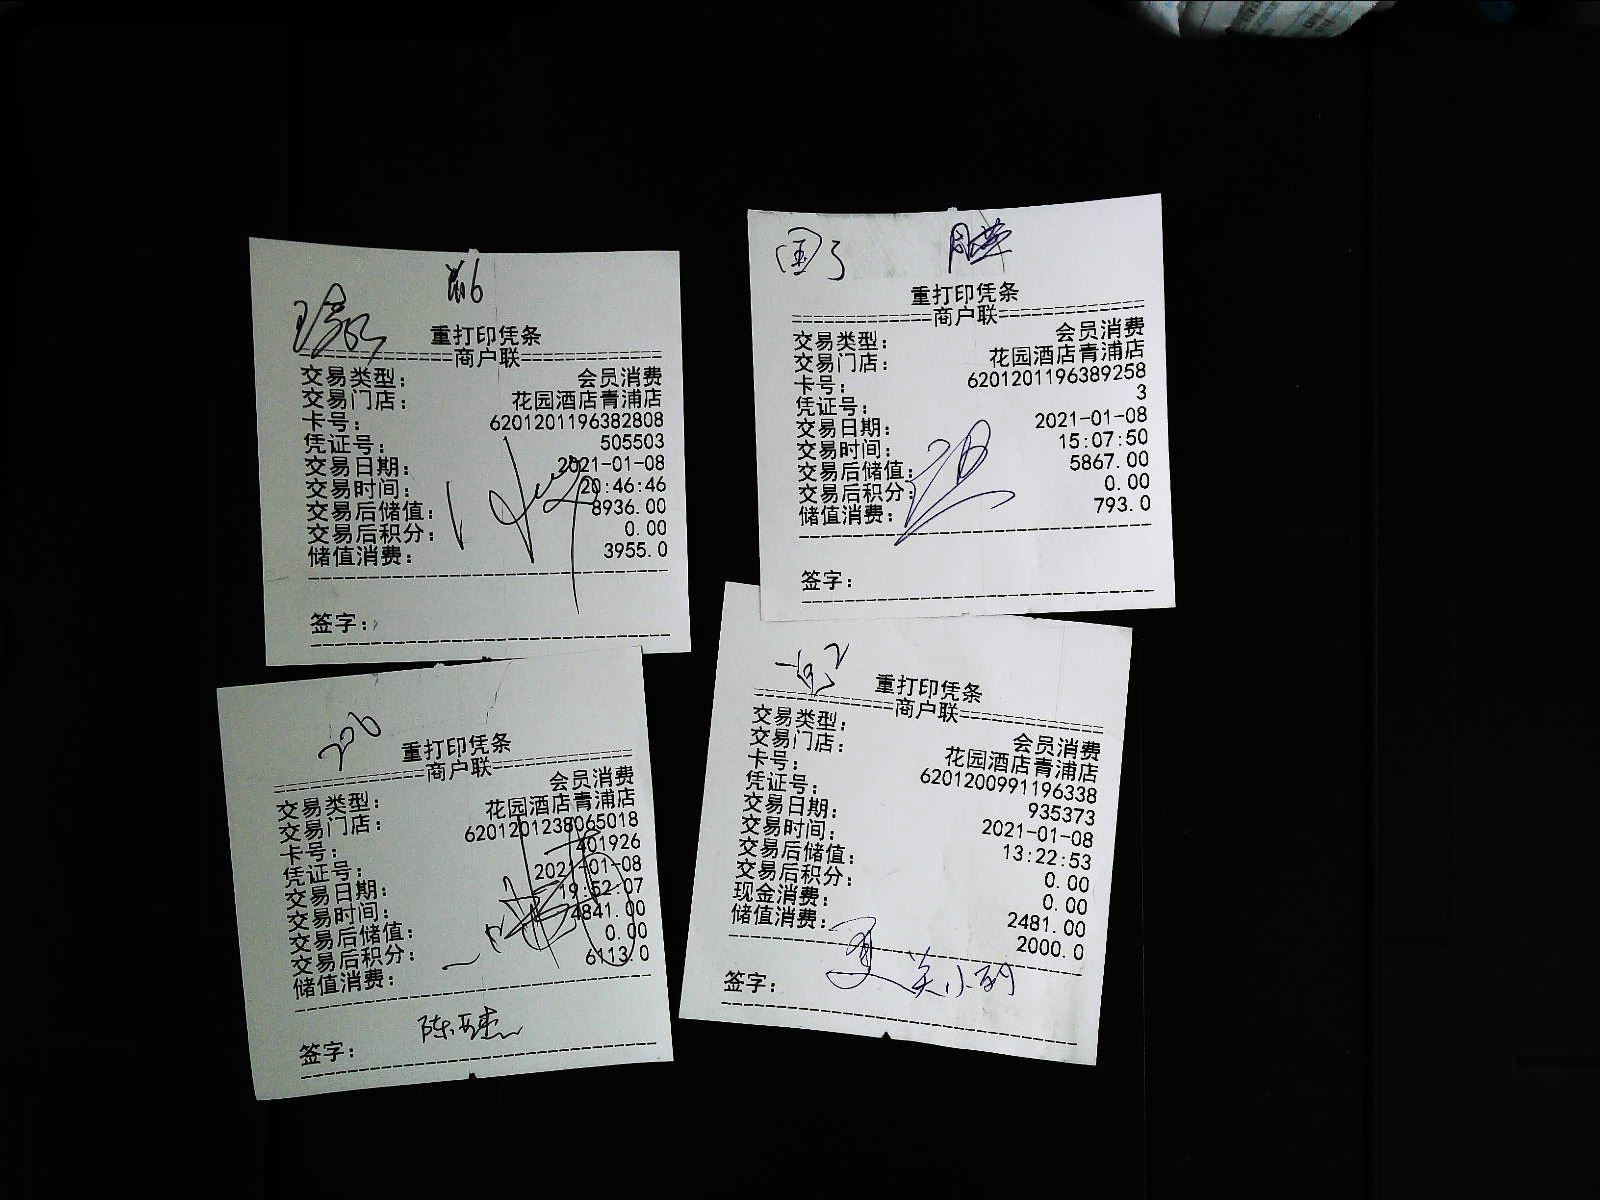 重打印凭条
============商户联============
交易类型: 会员消费
交易门店: 花园酒店青浦店
卡号: 6201201196382808
凭证号: 505503
交易日期: 2021-01-08
交易时间: 20:46:46
交易后储值: 8936.00
交易后积分: 0.00
储值消费: 3955.0
签字:
重打印凭条
============商户联============
交易类型: 会员消费
交易门店: 花园酒店青浦店
卡号: 6201201196389258
凭证号: 3
交易日期: 2021-01-08
交易时间: 15:07:50
交易后储值: 5867.00
交易后积分: 0.00
储值消费: 793.0
签字:
206
重打印凭条
============商户联============
交易类型: 会员消费
交易门店: 花园酒店青浦店
卡号: 6201201238065018
凭证号: 401926
交易日期: 2021-01-08
交易时间: 19:52:07
交易后储值: 4841.00
交易后积分: 0.00
储值消费: 6113.0
签字:
重打印凭条
============商户联============
交易类型: 会员消费
交易门店: 花园酒店青浦店
卡号: 6201200991196338
凭证号: 935373
交易日期: 2021-01-08
交易时间: 13:22:53
交易后储值: 0.00
交易后积分: 0.00
现金消费: 2481.00
储值消费: 2000.0
签字: